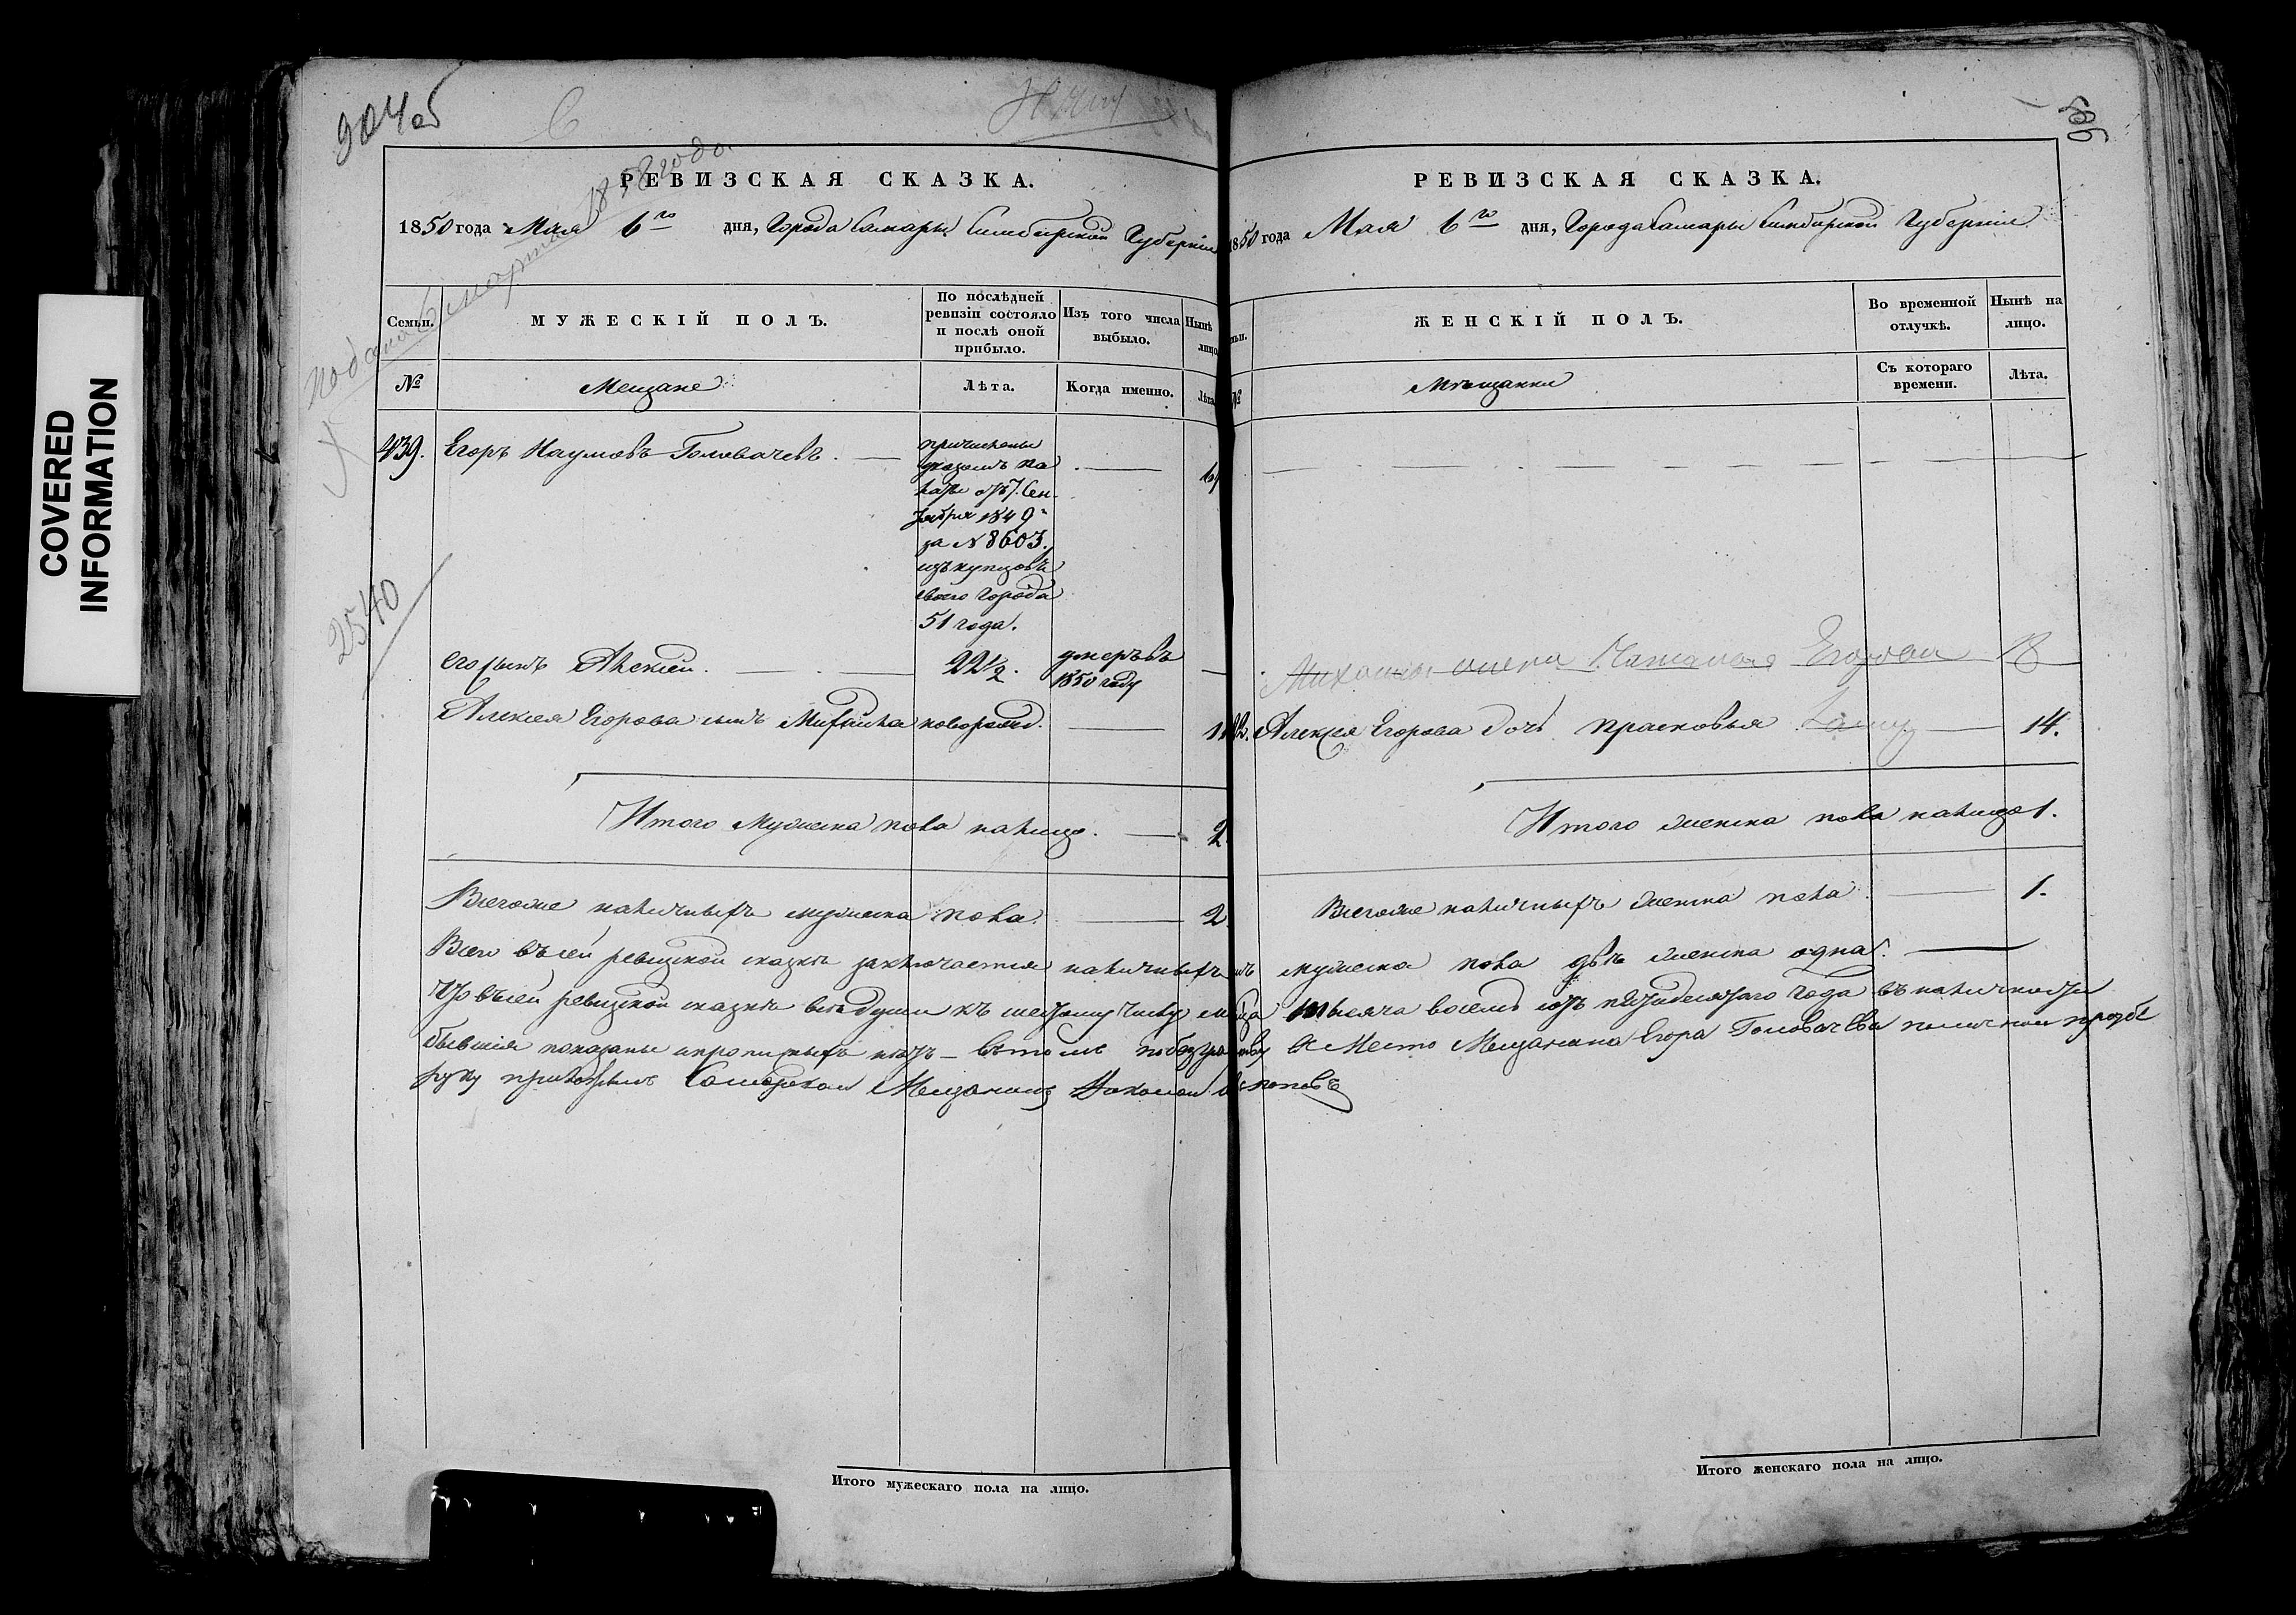 COVERED
INFORMATION
904 об
С
РЕВИЗСКАЯ СКАЗКА.
1850 года Мая 6го дня, Города Самары Симбирской Губернии
подана 6 марта 1858 года.
Семьи.
МУЖЕСКІЙ ПОЛЪ.
По послѣдней
ревизіи состояло
и послѣ оной
прибыло.
Изъ того числа
выбыло.
Нынѣ
лицо
№
Мещане
Лѣта.
Когда именно.
Лѣта
439. Егоръ Наумовъ Головачевъ.
причисленъ
указомъ Па
латы отъ 7. Сен
тября 1849
за № 8603.
изъ купцовъ
своего города
51 года.
2540
его сынъ Алексѣй. 22½. умеръ въ
1850 году
Алексея Егорова сынъ Михайла новорожд.
Итого Мужеска пола налицо. 2
Всегоже наличныхъ мужеска пола. 2
905
РЕВИЗСКАЯ СКАЗКА.
1850 года Мая 6го дня, Города Самары Симбирской Губерніи
ЖЕНСКІЙ ПОЛЪ.
Во временной
отлучкѣ.
Нынѣ на
лицо.
№
Мѣщанки
Съ котораго
времени.
Лѣта.
Михайлы жена Наталья Егорова 18
Алексея Егорова дочь Прасковья 14.
Итого женска пола налицо 1.
Всегоже наличныхъ женска пола 1.
Всего въ сей ревизской сказкѣ заключается наличныхъ мужеска пола двѣ женска одна.
Что въ сей ревизской сказкѣ все души къ шестому числу Мая тысяча восемь сотъ пятидесятаго года въ наличности
бывшія показаны и прописныхъ нѣтъ – въ томъ Вместо Мещанина Егора Головачева по личной прозбе
руку приложилъ Самарской Мещанинъ
Итого мужескаго пола на лицо.
Итого женскаго пола на лицо.